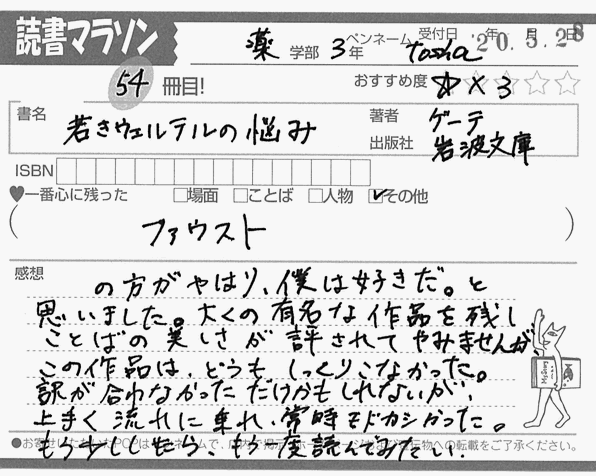 読書マラソン
薬 学部 3年 ペンネーム tosha 受付日 年 月 日 20.5.28
54 冊目! おすすめ度 ☆×3 ☆☆
書名 若きウェルテルの悩み
著者 ゲーテ
出版社 岩波文庫
ISBN
♥一番心に残った □場面 □ことば □人物 ☑その他
( ファウスト )
感想
の方がやはり、僕は好きだ。と
思いました。大くの有名な作品を残し
ことばの美しさが評されてやみませんが、
この作品は、どうもしっくりこなかった。
訳が合わなかっただけかもしれないが、
上手く流れに乗れ、常時モドカシかった。
●お寄せいただいたPOPは ペンネームで、店内で掲示 ホームページ 印刷物への転載をご了承ください。
もう少ししたら もう一度読んでみたい